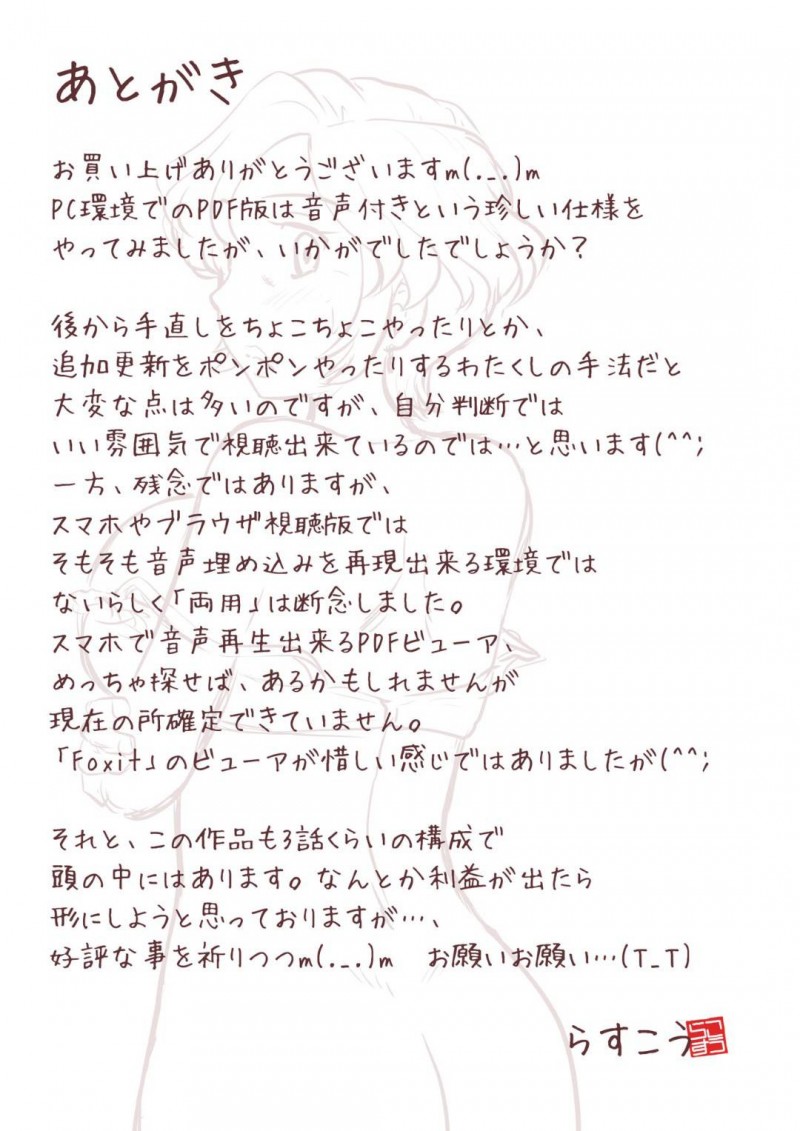 あとがき
お買い上げありがとうございますm(._.)m
PC環境でのPDF版は音声付きという珍しい仕様を
やってみましたが、いかがでしたでしょうか？
後から手直しをちょこちょこやったりとか、
追加更新をポンポンやったりするわたくしの手法だと
大変な点は多いのですが、自分判断では
いい雰囲気で視聴出来ているのでは…と思います(^^;
一方、残念ではありますが、
スマホやブラウザ視聴版では
そもそも音声埋め込みを再現出来る環境では
ないらしく「両用」は断念しました。
スマホで音声再生出来るPDFビューア、
めっちゃ探せば、あるかもしれませんが
現在の所確定できていません。
「Foxit」のビューアが惜しい感じではありましたが(^^;
それと、この作品も3話くらいの構成で
頭の中にはあります。なんとか利益が出たら
形にしようと思っておりますが…、
好評な事を祈りつつm(._.)m　お願いお願い…(T_T)
らすこう